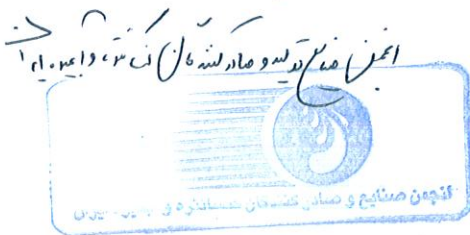 انجمن صنایع تولید و صادرکنندگان کنسانتره و آبمیوه ایران
انجمن صنایع و صادرکنندگان کنسانتره و آبمیوه ایران